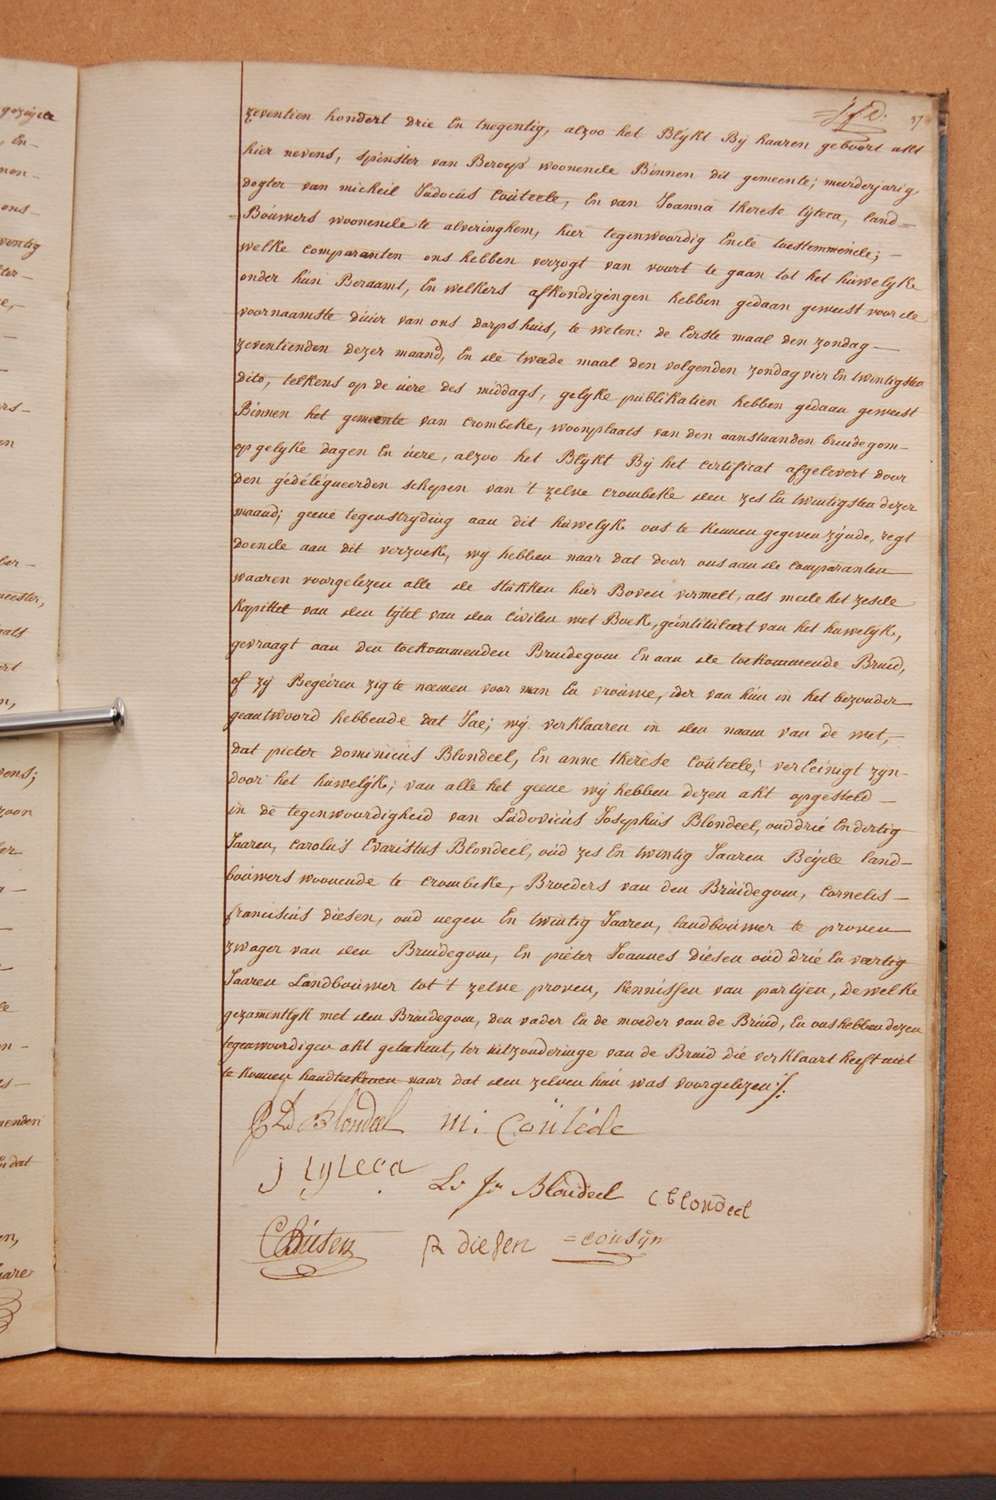 zeventien hondert drie En tnegentig, alzoo het Blijkt Bij haaren geboort akt
hier nevens, spinster van Beroep woonende Binnen dit gemeente; meerderjarig,
dogter van micheil Judocus Coúteele, En van Joanna therese tyteca, land=
=Bouwers woonende te alveringhem, hier tegenwoordig Ende toestemmende; —
welke comparanten ons hebben verzogt van voort te gaan tot het húwelijke
onder hún Beraamt, En welkers afkondigingen hebben gedaan geweest voor de
voornaamste dúúr van ons dorpshuis, te weten: de Eerste maal den zondag —
zeventienden dezer maand, En de twede maal den volgenden zondag vier En twintigsten
dito, telkens op de úere des middags, gelyke públikatien hebben gedaan geweest
Binnen het gemeente van Crombeke, woonplaats van den aanstaanden bruidegom —
op gelyke dagen En úere, alzoo het Blijkt Bij het Certificat afgelevert door
den gédélegueerden schepen van 't zelve crombeke den zes En twintigsten dezer
maand; geene tegenstryding aan dit húwelyke ons te kennen gegeven zijnde, regt
doende aan dit verzoeke, wy hebben naar dat door ons aan de comparanten
waaren voorgelezen alle de stúkken hier Boven vermelt, als mede het zesde
kapittel van den tytel van den Civilen wet Boek, geintitúlert van het huwelijk,
gevraagt aan den toekommenden Bruidegom En aan de toekommende Bruid,
of zÿ Begeiren zig te neemen voor man En vrouwe, ider van hún in het bezonder
geantwoord hebbende dat Jae; wij verklaaren in den naam van de wet, —
dat pieter Dominicús Blondeel, En anne therese Coúteele; vereinigt zijn —
door het huwelijk; van alle het geene wij hebben dezen akt opgesteld —
in de tegenwoordigheid van Lúdovicús Josephús Blondeel, oud drie En dertig
Jaaren, Carolús Evaristus Blondeel, oúd zes En twintig Jaaren Beyde land—
bouwers woonende te Crombeke, Broeders van den Brúidegom, cornelis —
franciscús diesen, oud negen En twintig Jaaren, landbouwer te proven
zwager van den Bruidegom, En piéter Joannes Diesen oúd drié En veertig
Jaaren Landboúwer tot 't zelve proven, kennissen van partijen, de welke
gezamentlyk met den Brúidegom, den vader En de moeder van de Brúid, En ons hebben dezen
tegenwoordigen akt getekent, ter uitzonderinge van de Bruid die verklaart heeft niet
te konnen handteekenen naar dat den zelven hún was voorgelezen ./.
P D Blondeel mi Coúteele
J tyteca
L. Js. Blondeel C blondeel
C Diesen P diesen = cousijn